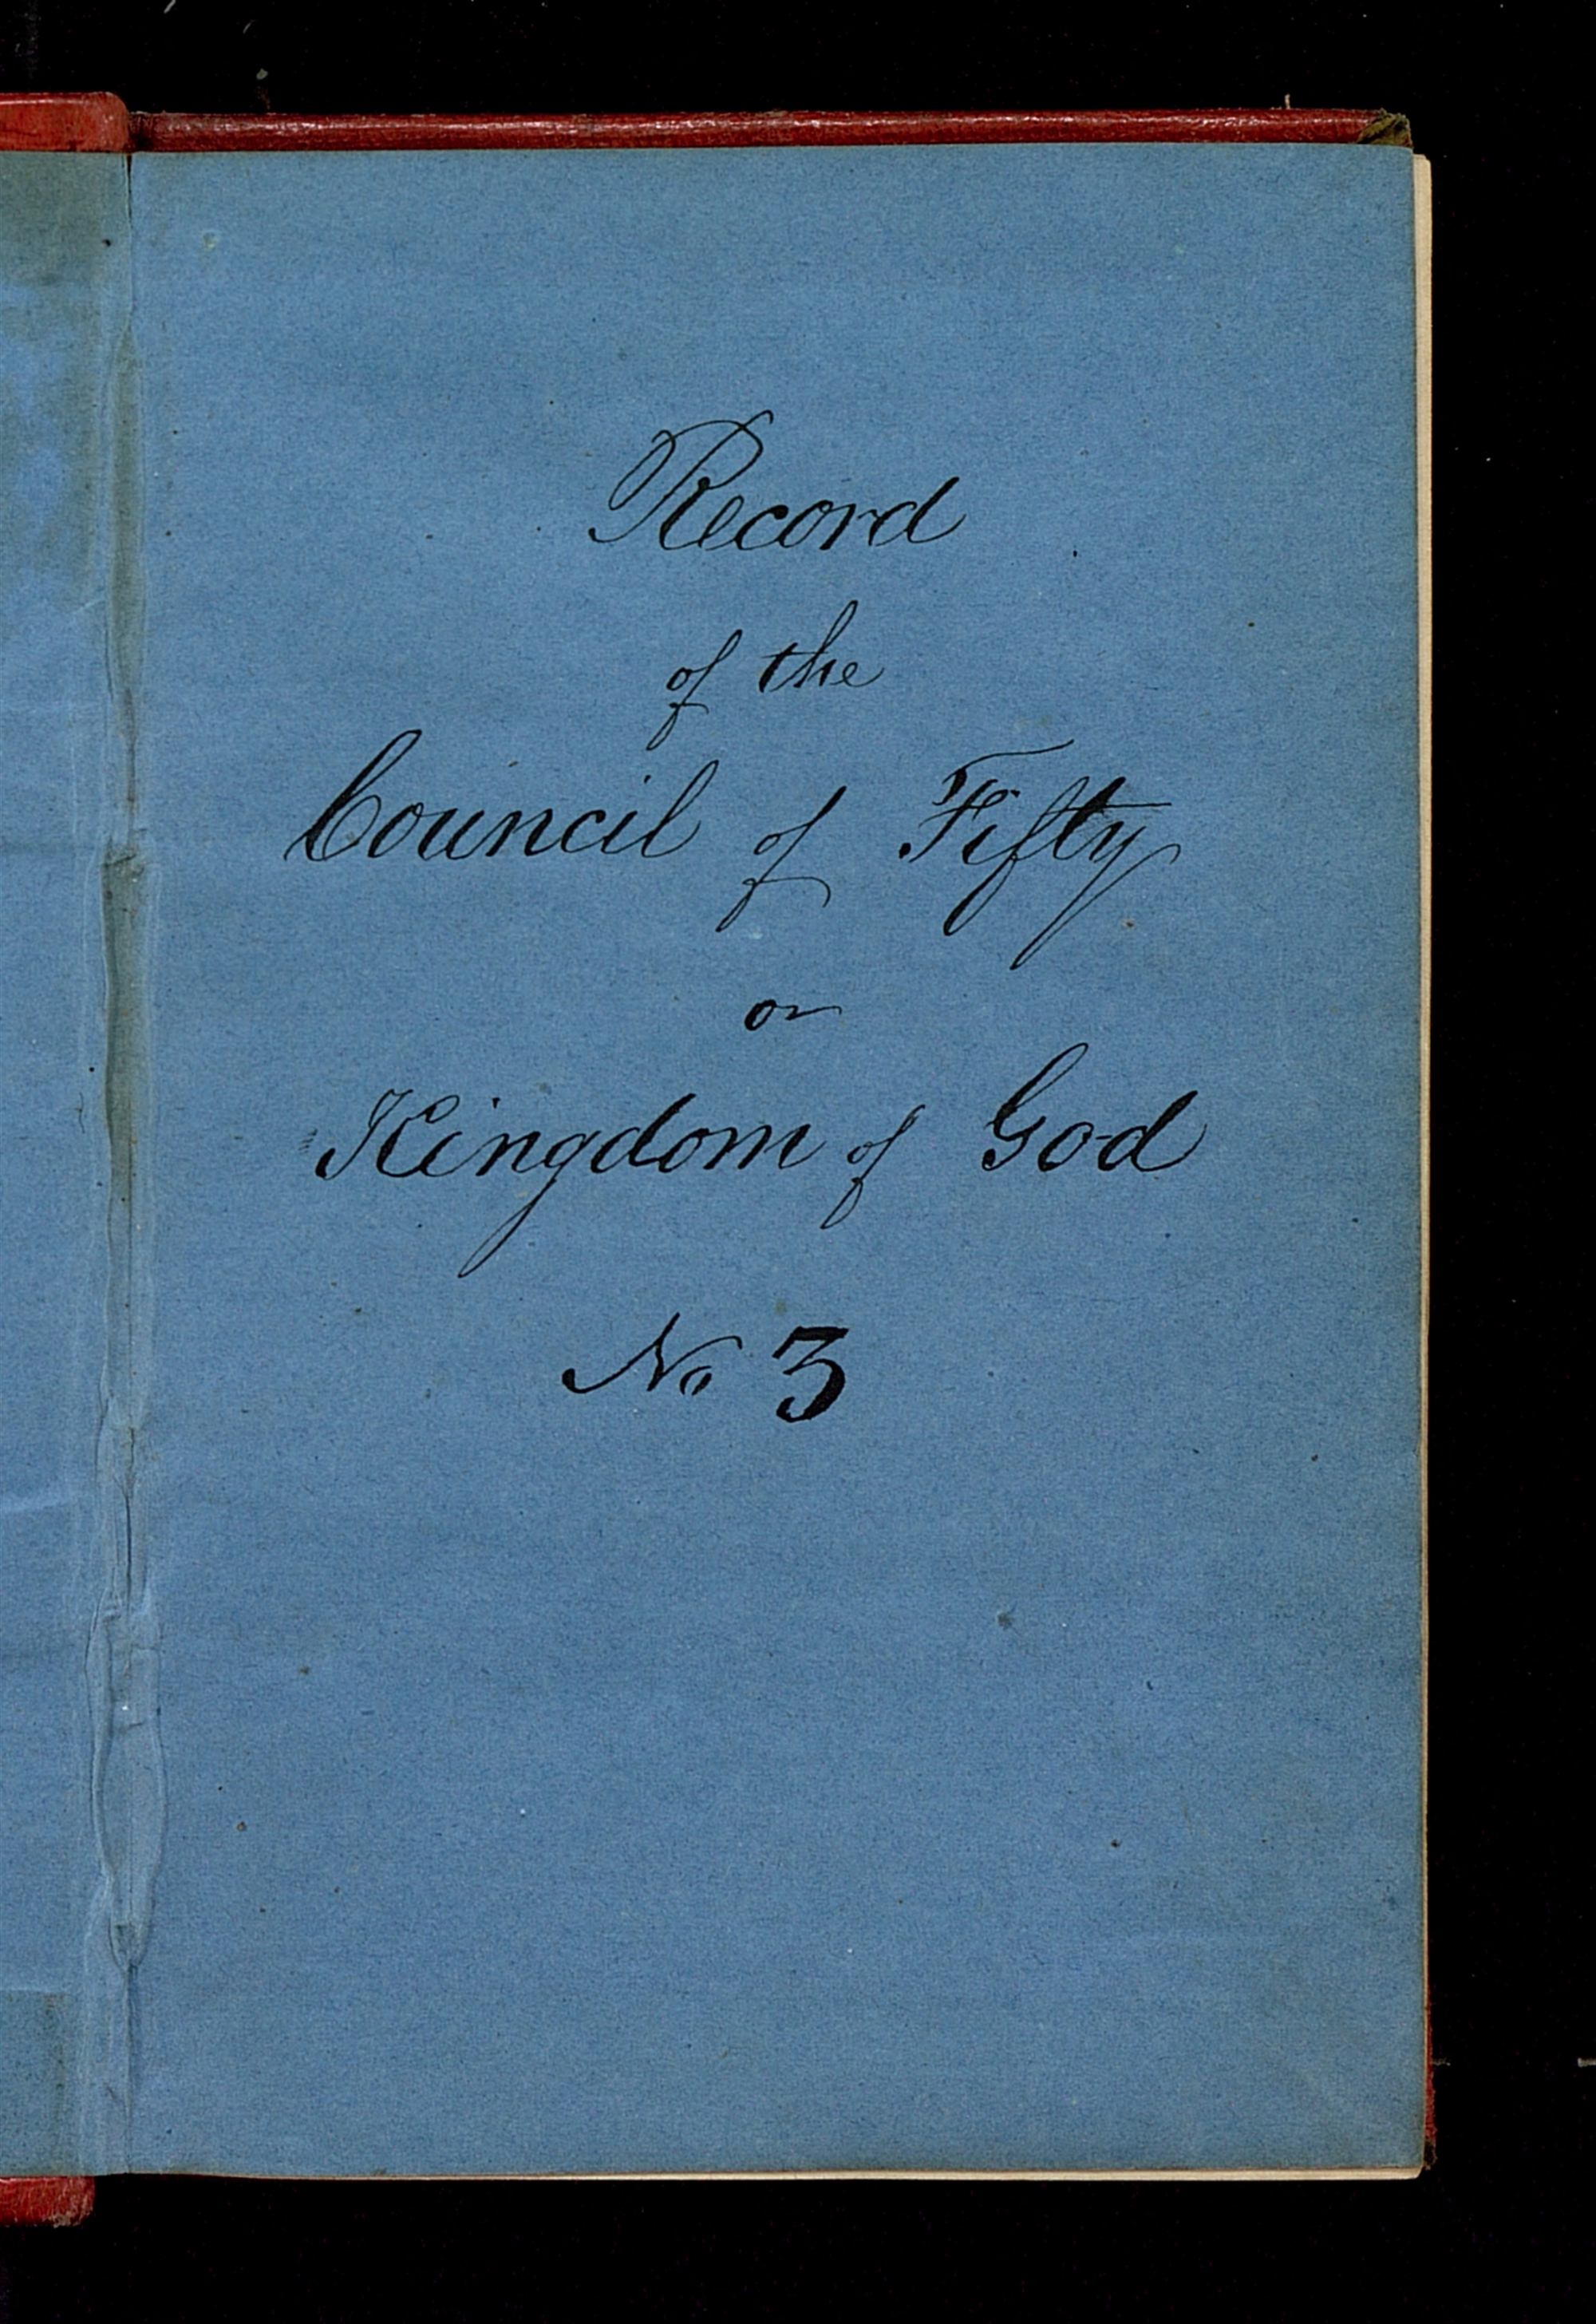 Record
of the
Council of Fifty
or
Kingdom of God
No 3